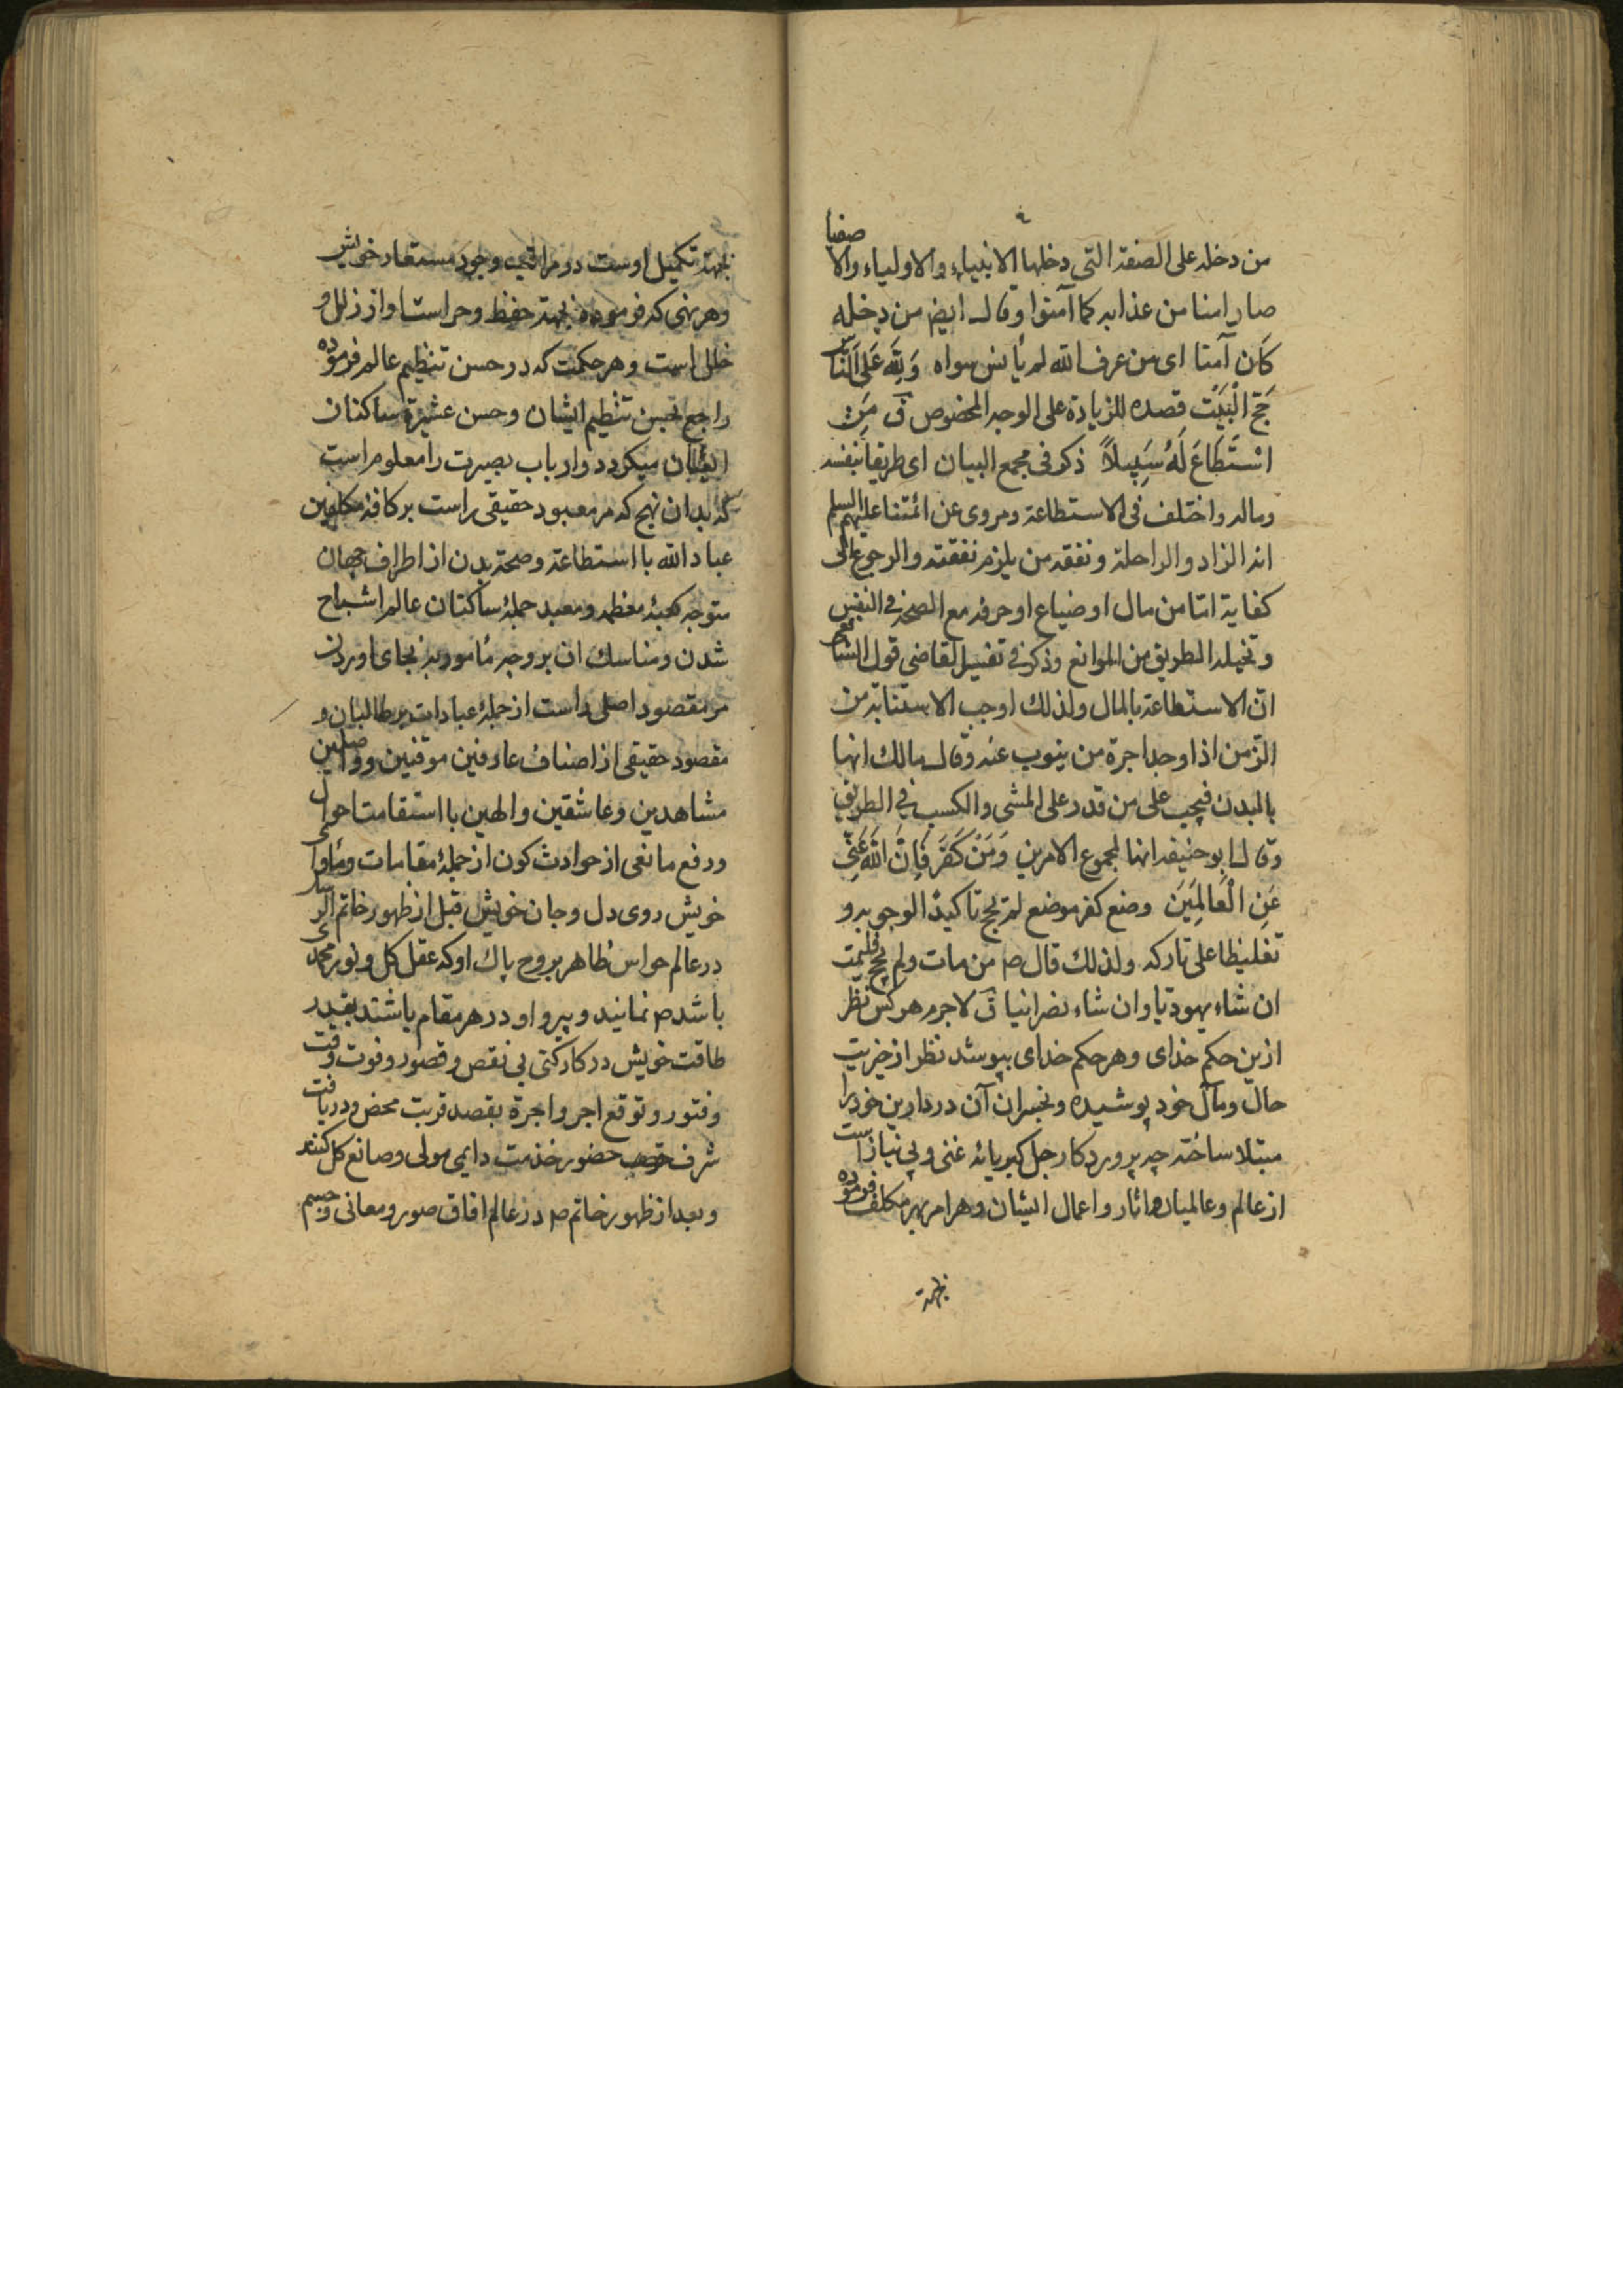 من دخله على الصفة التى دخلها الانبياء والاولياء والاصفيا
صار امنا من عذابه كما آمنوا وقال ايضم من دخله
كَان آمنا اى من عرف الله لم يأنس سواه وَلِلّهِ عَلَى النَّاسِ
حَجّ الْبَيْت قصده للزيادة على الوجه المخصوص ق مَنِ
اسْتَطَاعَ لَهُ سَبِيلاً ذكر فى مجمع البيان اى طريقا بنفسه
وماله واختلف فى الاستطاعة ومروى عن ائمتنا عليهم السلم
انه الزاد والراحلة ونفقه من يلزم نفقته والرجوع الى
كفاية امّا من مال او ضياع او حرفه مع الصحة فى النفس
وتخيله الطريق من الموانع وذكر فى تفسير القاضى قول الشافعى
انّ الاستطاعة بالمال ولذلك اوجب الاستنابة من
الزّمن اذا وجد اجرة من ينوب عنه وقال مالك انها
بالبدن فيجب على من قدر على المشى والكسب فى الطريق
وقال ابو حنيفه انها لمجموع الامرين وَمَنْ كَفَرَ فَاِنَّ اللّهَ غَنِىٌّ
عَنِ الْعَالَمِينَ وضع كفر موضع لم يحج تاكيدا لوجوبه و
تغليظا على تاركه ولذلك قال ص من مات ولم يحج فليمت
ان شاء يهوديا وان شاء نصرانيا ق لاجرم هركس نظر
ازين حكم خداى وهر حكم خداى بپوشد نظر از خيريت
حال ومآل خود پوشيده وبخسران آن در دارين خود را
مبتلا ساخته چه پروردكار جل كبريائه غنى وبى نياز است
از عالم وعالميان واثار واعمال ايشان وهر امر بهر مكلف فرموده
بجهة
بجهة تكميل اوست در مراتب وجود مستعار خويش
وهر نهى كه فرموده بجهة حفظ وحراست او از زلل و
خلل است وهر حكمت كه در حسن تنظيم عالم فرموده
راجع بحسن تنظيم ايشان وحسن عشيرة ساكنان
ايشان ميكردد وارباب بصيرت را معلوم است
كه بدان نهج كه مر معبود حقيقى راست بر كافة مكلفين
عباد الله با استطاعة وصحة بدن از اطراف جهان
متوجه كعبهٔ معظمه ومعبد جملهٔ ساكنان عالم اشباح
شدن ومناسك ان بر وجه مأمور به بجاى اوردن
مر مقصود اصلى راست از جملهٔ عبادات بر طالبان و
مقصود حقيقى از اصناف عارفين موقنين وواصلين
مشاهدين وعاشقين والهين با استقامت احوال
ورفع مانعى از حوادث كون از جملهٔ مقامات ومأواى
خويش روى دل وجان خويش قبل از ظهور خاتم الرسل
در عالم حواس ظاهر بروح پاك او كه عقل كل ونور محمدى
باشد ص نمايند وپيرو او در هر مقام باشند بقدر
طاقت خويش در كار كنى بى نقص وقصور وفوت وقت
وفتور وتوقع اجر واجرة بقصد قربت محض ودريافت
شرف حضور خدمت دايمى مولى وصانع كل كنند
وبعد از ظهور خاتم ص در عالم افاق صور ومعانى وجسم